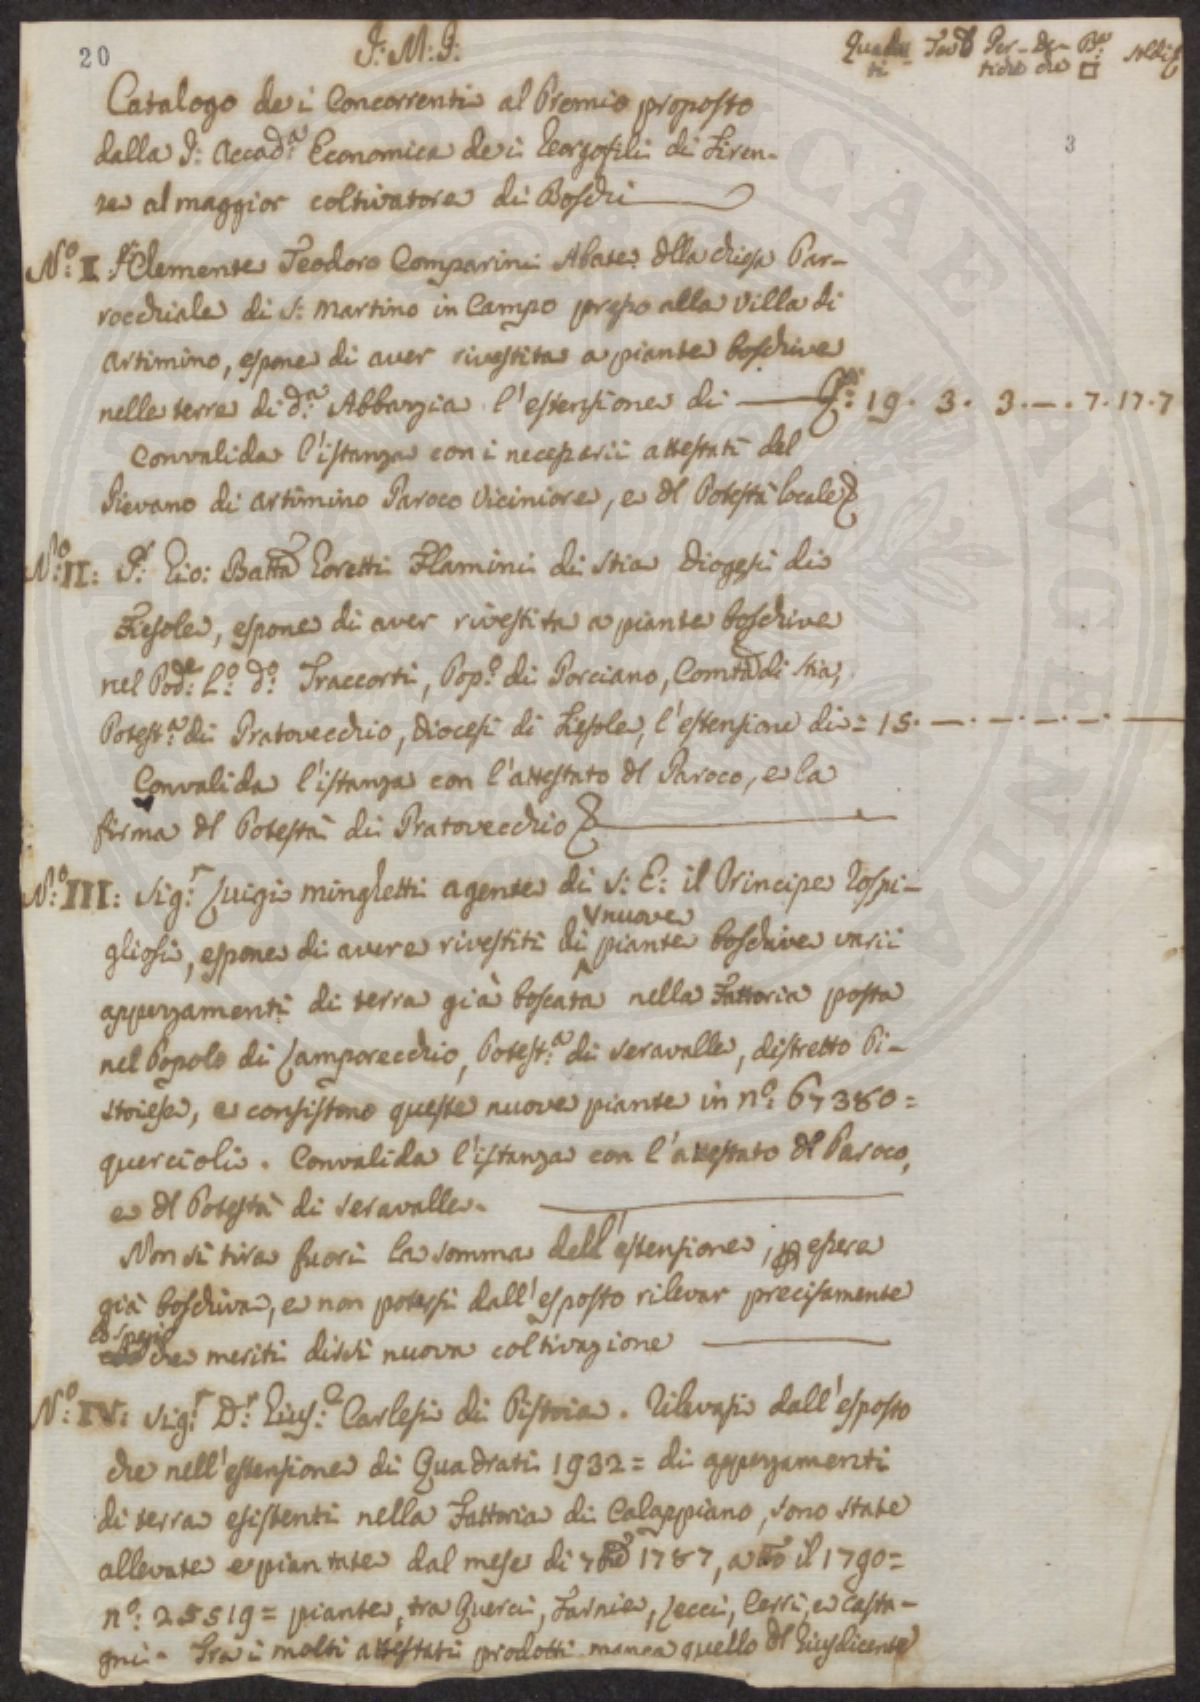 20
J: M: J:
Quadra- Tavo Per- De- Ba Soldi
ti tiche che □
3
Catalogo de i Concorrenti al Premio proposto
dalla I: Accad:a Economica de i Georgofili di Firen-
ze al maggior coltivatore di Boschi
N:o I Clemente Teodoro Comparini Abate della chiesa Par-
rocchiale di S: Martino in Campo presso alla Villa di
Artimino, espone di aver rivestita a piante boschive
nelle terre di d:a Abbazia l'estensione di Q:ti 19. 3. 3. —. 7. 17. 7
Convalida l'istanza con i necessarii attestati del
Pievano di Artimino Paroco Viciniore, e del Potestà locale
N:o II: S:r Gio: Batta Goretti Flamini di Stia Diogesi di
Fiesole, espone di aver rivestita a piante boschive
nel Pod:e L:o d:o Traccorti, Pop:o di Porciano, Comtà di Stia,
Potest:a di Pratovecchio, Diocesi di Fiesole, l'estensione di = 15. —. —. —. —. —
Convalida l'istanza con l'attestato del Paroco, e la
firma del Potestà di Pratovecchio
N:o III: Sig:r Luigi Minghetti agente di S: E: il Principe Rospi-
gliosi, espone di avere rivestiti di nuove piante boschive varii
appezamenti di terra già boscata nella Fattoria posta
nel Popolo di Lamporecchio, Potest:a di Seravalle, distretto Pi-
stoiese, e consistono queste nuove piante in n:o 67380 =
quercioli. Convalida l'istanza con l'attestato del Paroco,
e del Potestà di Seravalle.
Non si tira fuori la somma dell'estensione, p essere
già boschiva, e non potersi dall'esposto rilevar precisamente
lo spazio che meriti dirsi nuova coltivazione
N:o IV: Sig:r D:r Gius:e Carlesi di Pistoia. Rilevasi dall'esposto
che nell'estensione di Quadrati 1932 = di appezamenti
di terra esistenti nella Fattoria di Calappiano, sono state
allevate e piantate dal mese di 7bre 1787, a tto il 1790 =
n:o 25519 = piante, tra Querci, Farnie, Lecci, Cerri, e Casta-
gni. Tra i molti attestati prodotti manca quello del Giusdicente